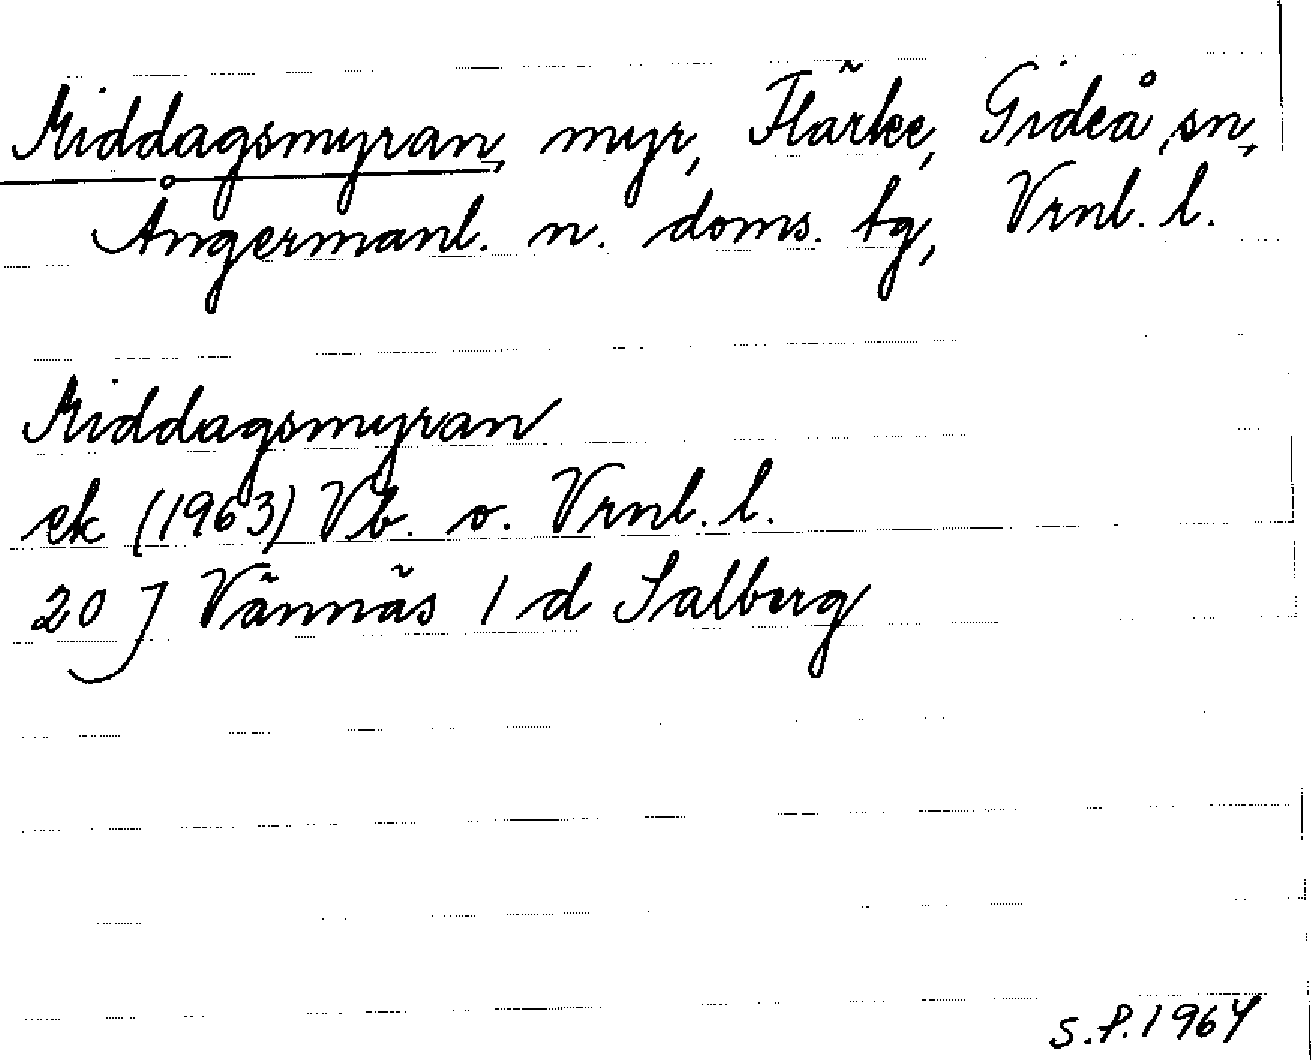 Middagsmyran, myr, Flärke, Gideå sn,
Ångermanl. n. doms. tg, Vrnl. l.
Middagsmyran
ek (1963) Vb. o. Vrnl. l.
20 J Vännäs 1 d Salberg
S.P. 1964